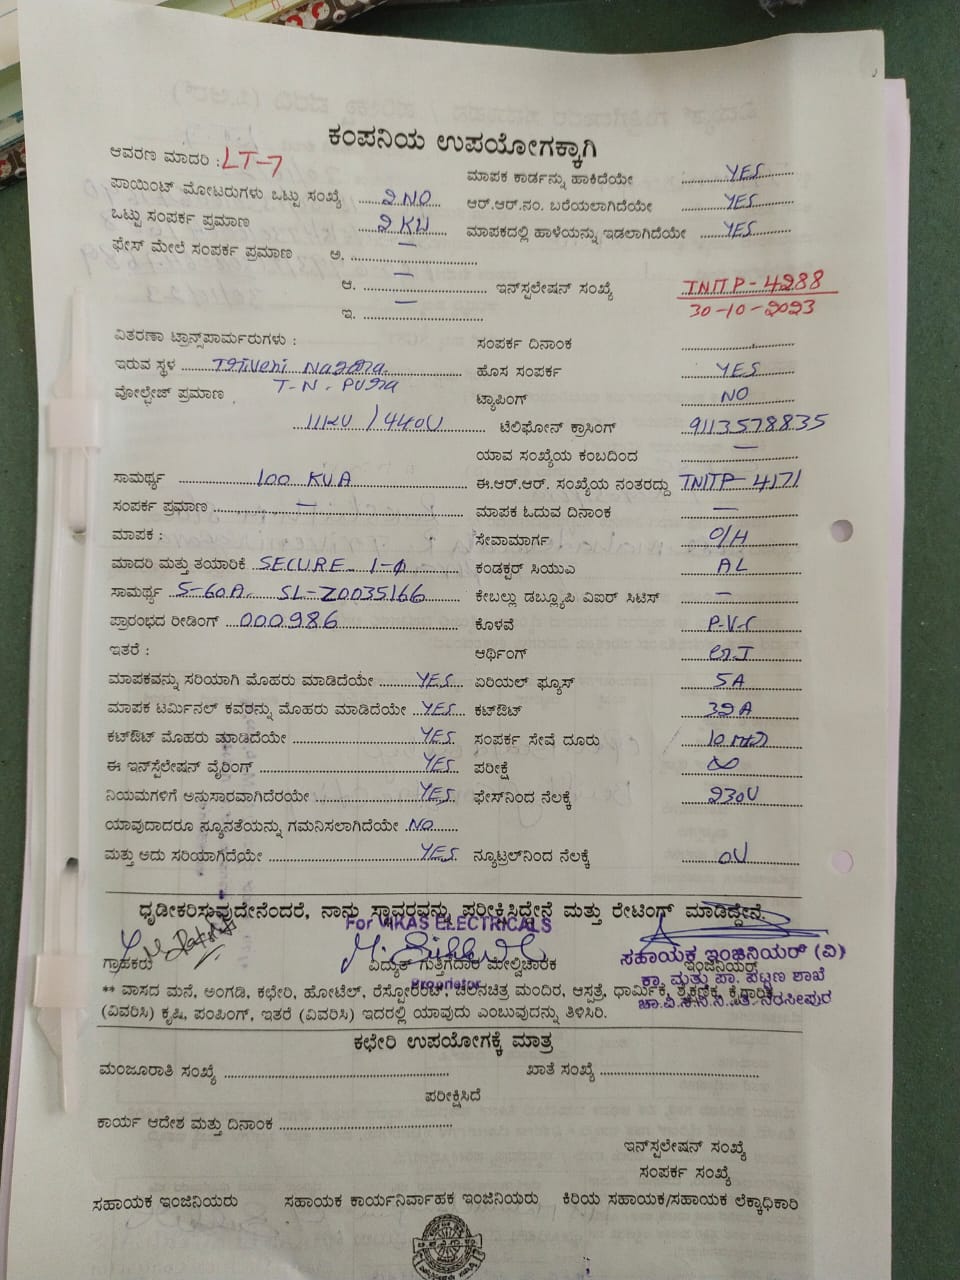 ಕಂಪನಿಯ ಉಪಯೋಗಕ್ಕಾಗಿ
ಆವರಣ ಮಾದರಿ : LT-7
ಮಾಪಕ ಕಾರ್ಡನ್ನು ಹಾಕಿದೆಯೇ YES
ಪಾಯಿಂಟ್ ಮೋಟರುಗಳು ಒಟ್ಟು ಸಂಖ್ಯೆ 2 NO
ಆರ್.ಆರ್.ನಂ. ಬರೆಯಲಾಗಿದೆಯೇ YES
ಒಟ್ಟು ಸಂಪರ್ಕ ಪ್ರಮಾಣ 2 KW
ಮಾಪಕದಲ್ಲಿ ಹಾಳೆಯನ್ನು ಇಡಲಾಗಿದೆಯೇ YES
ಫೇಸ್ ಮೇಲೆ ಸಂಪರ್ಕ ಪ್ರಮಾಣ ಅ. —
ಆ. —
ಇನ್‌ಸ್ಪಲೇಷನ್ ಸಂಖ್ಯೆ TNITP-4288
30-10-2023
ಇ. —
ವಿತರಣಾ ಟ್ರಾನ್ಸ್‌ಪಾರ್ಮರುಗಳು :
ಸಂಪರ್ಕ ದಿನಾಂಕ
ಇರುವ ಸ್ಥಳ Triveni Nagara
T-N-Pura
ಹೊಸ ಸಂಪರ್ಕ YES
ವೋಲ್ಟೇಜ್ ಪ್ರಮಾಣ
11KV / 440V
ಟ್ಯಾಪಿಂಗ್ NO
ಟೆಲಿಫೋನ್ ಕ್ರಾಸಿಂಗ್ 9113578835
ಯಾವ ಸಂಖ್ಯೆಯ ಕಂಬದಿಂದ —
ಸಾಮರ್ಥ್ಯ 100 KVA
ಈ.ಆರ್.ಆರ್. ಸಂಖ್ಯೆಯ ನಂತರದ್ದು TNITP-4171
ಸಂಪರ್ಕ ಪ್ರಮಾಣ —
ಮಾಪಕ ಓದುವ ದಿನಾಂಕ —
ಮಾಪಕ :
ಸೇವಾಮಾರ್ಗ O/H
ಮಾದರಿ ಮತ್ತು ತಯಾರಿಕೆ SECURE 1-ф
ಕಂಡಕ್ಟರ್ ಸಿಯುಎ AL
ಸಾಮರ್ಥ್ಯ 5-60A. SL-Z0035166
ಕೇಬಲ್ಲು ಡಬ್ಲ್ಯೂಪಿ ಎಐರ್ ಸಿಟಿಸ್ —
ಪ್ರಾರಂಭದ ರೀಡಿಂಗ್ 000986
ಕೊಳವೆ P.V.C
ಇತರೆ :
ಆರ್ಥಿಂಗ್ G.I
ಮಾಪಕವನ್ನು ಸರಿಯಾಗಿ ಮೊಹರು ಮಾಡಿದೆಯೇ YES
ಏರಿಯಲ್ ಫ್ಯೂಸ್ 5A
ಮಾಪಕ ಟರ್ಮಿನಲ್ ಕವರನ್ನು ಮೊಹರು ಮಾಡಿದೆಯೇ YES
ಕಟ್‌ಔಟ್ 32A
ಕಟ್‌ಔಟ್ ಮೊಹರು ಮಾಡಿದೆಯೇ YES
ಸಂಪರ್ಕ ಸೇವೆ ದೂರು 10 mtr
ಈ ಇನ್‌ಸ್ಟೆಲೇಷನ್ ವೈರಿಂಗ್ YES
ಪರೀಕ್ಷೆ ∞
ನಿಯಮಗಳಿಗೆ ಅನುಸಾರವಾಗಿದೆರಯೇ YES
ಫೇಸ್‌ನಿಂದ ನೆಲಕ್ಕೆ 230V
ಯಾವುದಾದರೂ ನ್ಯೂನತೆಯನ್ನು ಗಮನಿಸಲಾಗಿದೆಯೇ NO
ಮತ್ತು ಅದು ಸರಿಯಾಗಿದೆಯೇ YES
ನ್ಯೂಟ್ರಲ್‌ನಿಂದ ನೆಲಕ್ಕೆ 0V
ಧೃಡೀಕರಿಸುವುದೇನೆಂದರೆ, ನಾನು ಸ್ಥಾವರವನ್ನು ಪರೀಕ್ಷಿಸಿದ್ದೇನೆ ಮತ್ತು ರೇಟಿಂಗ್ ಮಾಡಿದ್ದೇನೆ.
For VIKAS ELECTRICALS
ಸಹಾಯಕ ಇಂಜಿನಿಯರ್ (ವಿ)
ಗ್ರಾಹಕರು
ವಿದ್ಯುತ್ ಗುತ್ತಿಗೆದಾರ ಮೇಲ್ವಿಚಾರಕ
ಇಂಜಿನಿಯರ್
ಕಾ. ಮತ್ತು ಪಾ. ಪಟ್ಟಣ ಶಾಖೆ
Proprietor
** ವಾಸದ ಮನೆ, ಅಂಗಡಿ, ಕಛೇರಿ, ಹೋಟೆಲ್, ರೆಸ್ಟೋರೆಂಟ್, ಚಲನಚಿತ್ರ ಮಂದಿರ, ಆಸ್ಪತ್ರೆ, ಧಾರ್ಮಿಕ, ಶೈಕ್ಷಣಿಕ, ಕೈಗಾರಿಕೆ
ಚಾ.ವಿ.ಸ.ನಿ.ನಿ. ತಿ. ನರಸೀಪುರ
(ವಿವರಿಸಿ) ಕೃಷಿ, ಪಂಪಿಂಗ್, ಇತರೆ (ವಿವರಿಸಿ) ಇದರಲ್ಲಿ ಯಾವುದು ಎಂಬುವುದನ್ನು ತಿಳಿಸಿರಿ.
ಕಛೇರಿ ಉಪಯೋಗಕ್ಕೆ ಮಾತ್ರ
ಮಂಜೂರಾತಿ ಸಂಖ್ಯೆ
ಖಾತೆ ಸಂಖ್ಯೆ
ಪರೀಕ್ಷಿಸಿದೆ
ಕಾರ್ಯ ಆದೇಶ ಮತ್ತು ದಿನಾಂಕ
ಇನ್‌ಸ್ಪಲೇಷನ್ ಸಂಖ್ಯೆ
ಸಂಪರ್ಕ ಸಂಖ್ಯೆ
ಸಹಾಯಕ ಇಂಜಿನಿಯರು
ಸಹಾಯಕ ಕಾರ್ಯನಿರ್ವಾಹಕ ಇಂಜಿನಿಯರು
ಕಿರಿಯ ಸಹಾಯಕ/ಸಹಾಯಕ ಲೆಕ್ಕಾಧಿಕಾರಿ